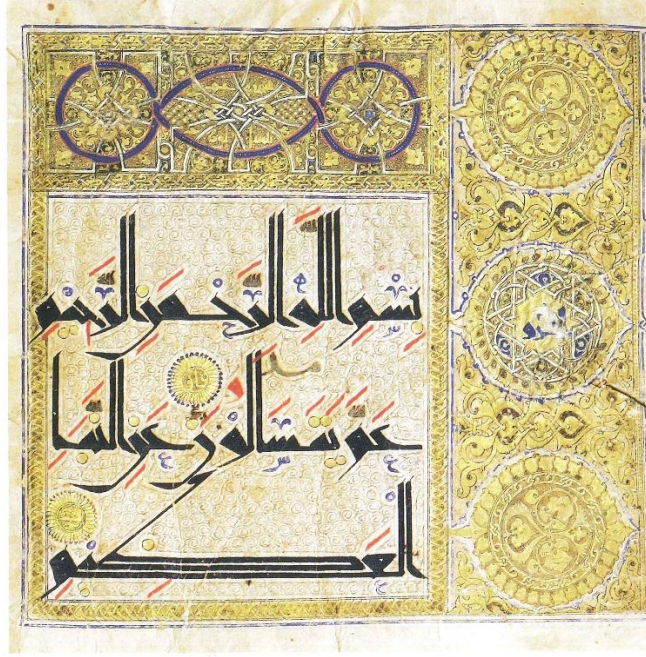 بسم الله الرحمن الرحيم
عم يتسالون عن النبا
العظيم